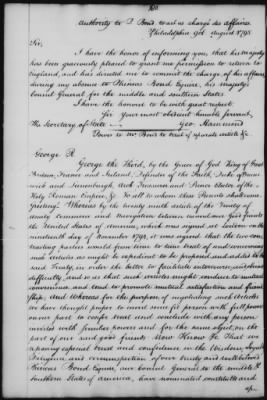 Authority to P. Bond to act as chargé des Affaires
Philadelphia 9th August 1795
Sir,
I have the honor of informing you, that his majesty
has been graciously pleased to grant me permission to return to
England, and has directed me to commit the charge of his affairs
during my absence to Phineas Bond Esquire, his majesty's
Consul General for the middle and southern States
I have the honour to be with great respect
Sir Your most obedient humble servant,
The Secretary of State Geo. Hammond
Power to Mr Bond to treat of separate article &c
George R.
George the Third, by the Grace of God King of Great
Britain, France and Ireland, Defender of the Faith, Duke of Brunswick
and Lunenburgh, Arch Treasurer and Prince Elector of the
Holy Roman Empire, &c To all to whom these Presents shall come
Greeting! Whereas by the twenty ninth article of the Treaty of
Amity Commerce and Navigation between us and our good Friends
the United States of America, which was signed at London on the
nineteenth day of November 1794, it was agreed that the two con
tracting parties would from time to time treat of and concerning
such articles as might be expedient to be proposed and added to the
said Treaty, in order the better to facilitate intercourse, and obviate
difficulty, and so as that such articles might conduce to mutual
convenience and tend to promote mutual satisfaction and friend
ship, And Whereas for the purpose of negotiating said Articles
we have thought proper to invest some fit person with full power
on our part to confer treat and conclude with any person
invested with similar powers and for the same object, on the
part of our said good friends. Now Know Ye That we
reposing especial trust and confidence in the Wisdom, Loyalty
Diligence and circumspection of our trusty and well beloved
Phineas Bond Esquire, our Consul General to the middle &
Southern States of America, have nominated constituted and
ap-